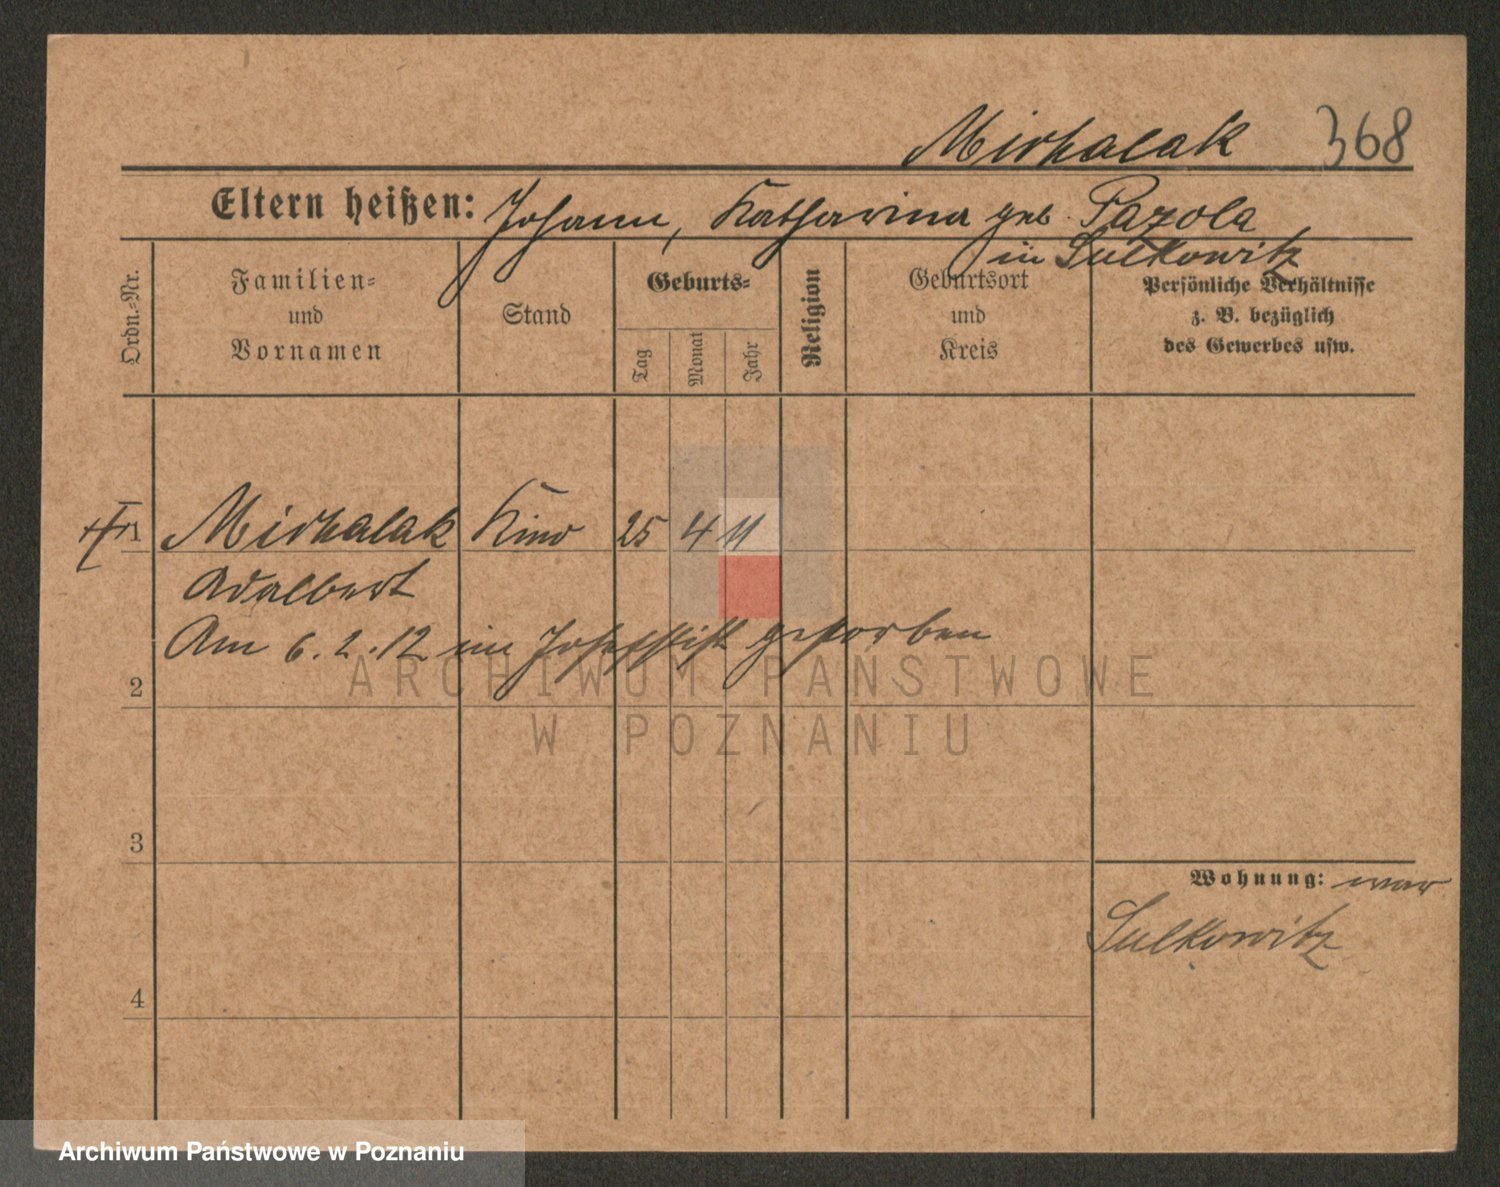 Michalak 368
Eltern heißen: Johann, Katharina geb. Pazola
in Sulkowitz
Ordn.-Nr.
Familien-
und
Vornamen
Stand
Geburts-
Tag
Monat
Jahr
Religion
Geburtsort
und
Kreis
Persönliche Verhältnisse
z. B. bezüglich
des Gewerbes usw.
1 Michalak Kind 25 4 11
Adalbert
Am 6. 2. 12 im Josefstift gestorben
2
3
4
Wohnung: war
Sulkowitz
ARCHIWUM PAŃSTWOWE
W POZNANIU
Archiwum Państwowe w Poznaniu